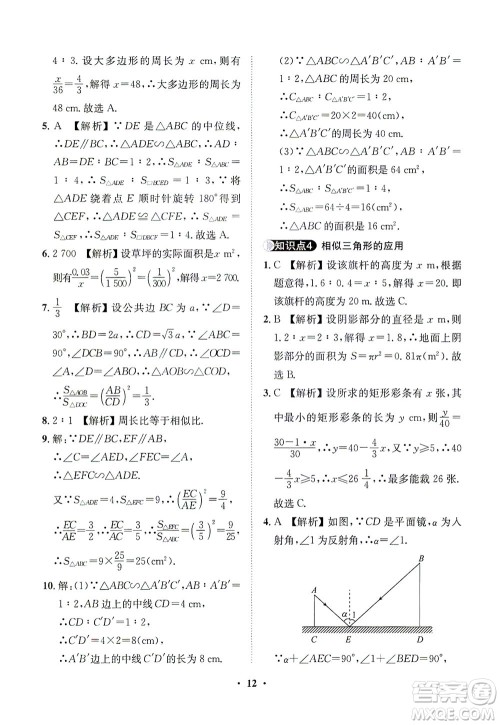 4∶3. 设大多边形的周长为 x cm, 则有
x/36 = 4/3, 解得 x=48, ∴大多边形的周长为
48 cm. 故选 A.
5. A 【解析】∵DE 是△ABC 的中位线,
∴DE∥BC, ∴△ADE∽△ABC, 相似比为
AD∶BD=1∶2, ∴S△ADE∶S△ABC=1∶4,
即 S△ADE∶S□BCED=1∶3,
将△ADE 绕着点 E 顺时针旋转 180°得到
△CEF, ∴△ADE≌△CEF,
∴S△CEF∶S□BCED=1∶3. 故选 A.
6. 2 700 【解析】设草坪的实际面积是 x m²,
则有 0.03/x = (5/1 500)², 解得 x=2 700.
7. 1/3 【解析】设公共边 BC 为 a, ∵∠D=
30°, ∴BD=2a, ∴CD=√3 a, ∵∠BCD=
90°, ∴∠DCP+∠OCB=90°, ∵∠DCP
=∠D, ∴∠A=∠D, ∴△AOB∽△DOC,
∴S△AOB/S△DOC=(AB/CD)²=1/3.
8. 2∶1 【解析】周长比等于相似比.
9. 解: ∵DE∥BC, DF∥AB,
∴∠C=∠AED, ∠FEC=∠A,
∴△EFC∽△ADE.
又∵S△ADE=4, S△EFC=9, ∴(EC/AE)²=9/4,
∴EC/AE=3/2, ∴EC/AC=3/5, ∴S△EFC/S△ABC=(EC/AC)²,
∴S△ABC=9×25/9=25(cm²).
10. 解: (1)∵△ABC∽△A′B′C′, AB∶A′B′=
1∶2, AB 边上的中线 CD=4 cm,
∴C′D′=4×2=8(cm),
∴A′B′边上的中线 C′D′的长为 8 cm.
(2)∵△ABC∽△A′B′C′, AB∶A′B′=
1∶2, △ABC 的周长为 20 cm,
∴C△ABC/C△A′B′C′=1/2,
∴C△A′B′C′=20×2=40(cm),
∴△A′B′C′的周长为 40 cm.
(3)∵△ABC∽△A′B′C′, AB∶A′B′=
1∶2, △A′B′C′的面积是 64 cm²,
∴S△ABC=64÷4=16(cm²),
∴△ABC 的面积是 16 cm².
知识点4 相似三角形的应用
1. C 【解析】设该旗杆的高度为 x m, 根据题
意得, 1.6∶0.4=x∶5, 解得 x=20(m).
即该旗杆的高度为 20 m. 故选 C.
2. B 【解析】设阴影部分的直径是 x m, 则
1.2∶x=2∶3, 解得 x=1.8, ∴地面上阴
影部分的面积为: S=πr²=0.81π(m²).
故选 B.
3. C 【解析】设所求的矩形彩条有 x 张, 其
中最小的矩形彩条长为 y cm, 则 y/40=
(30-1·x)/30, 解得 y=40-4/3x, ∵y≥5, ∴40
-4/3x≥5, ∴x≤26 1/4. ∴最多能裁 26 张.
故选 C.
4. A 【解析】如图, ∵CD 是平面镜, α=入
射角, ∠1=反射角, ∴∠1=α.
B
A
α 1
C E D
∵α+∠AEC=90°, ∠1+∠BED=90°,
12